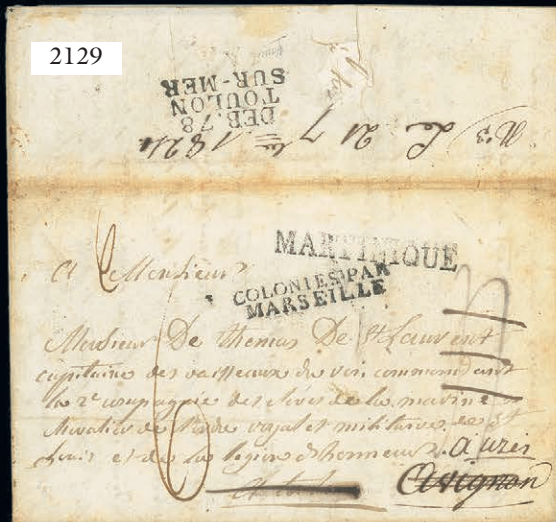 2129
DEB. 78
TOULON
SUR-MER
N° 3 Le 21 7bre 1824
MARTINIQUE
COLONIES PAR
MARSEILLE
A Monsieur
Monsieur De themas De St Laurent
capitaine des vaisseaux du roi commandant
la 2e compagnie des eleves de la marine
chevalier de l'ordre royal et militaire de St
Louis et de la legion d'honneur. a uzès
Avignon